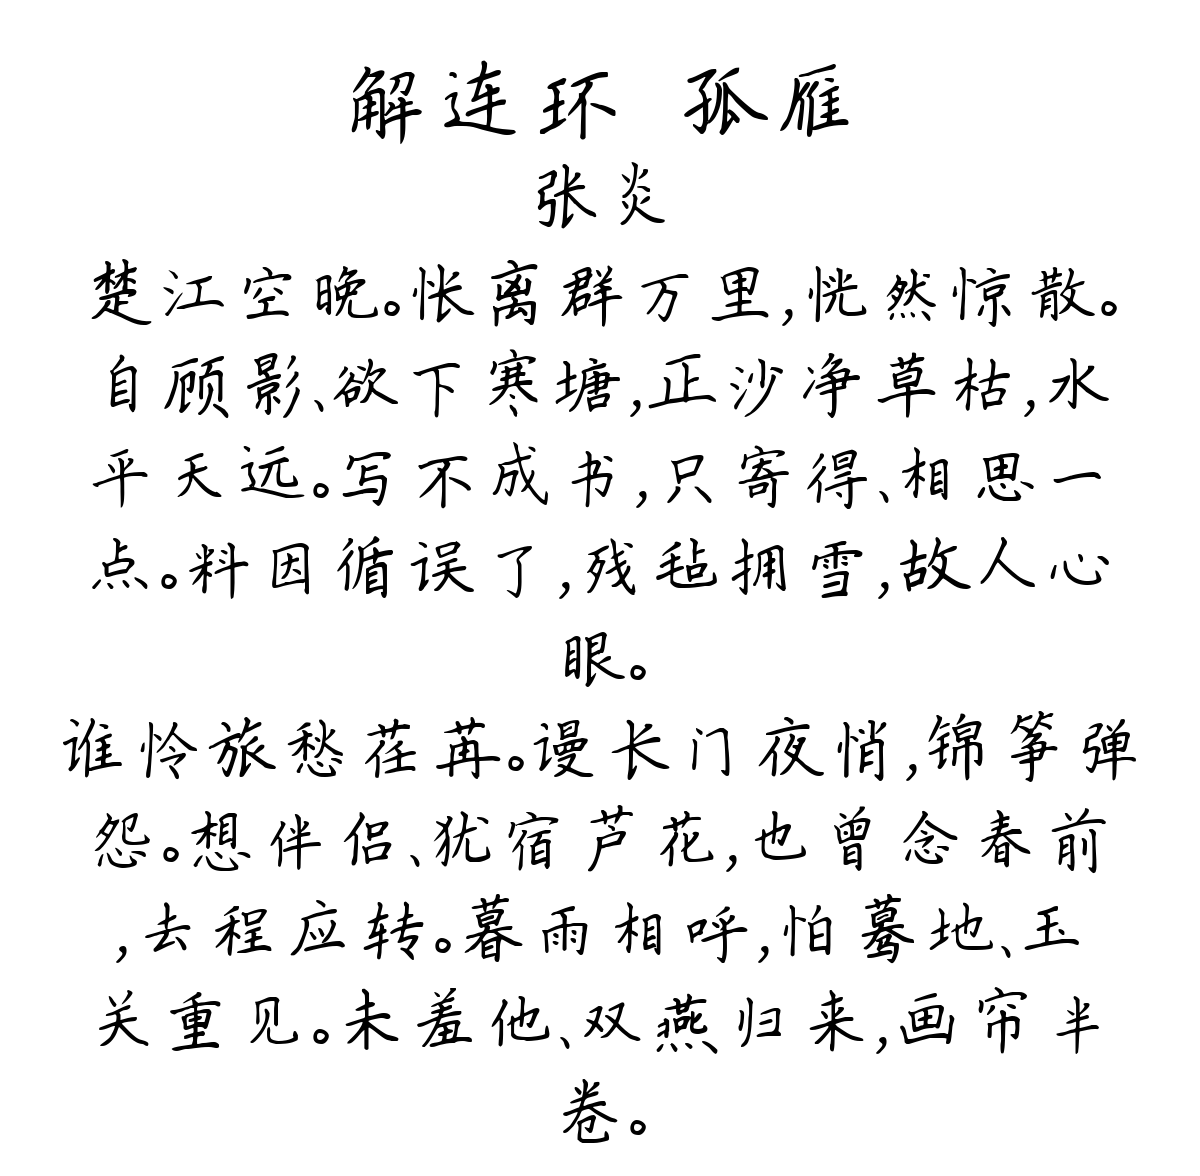 解连环 孤雁
张炎
楚江空晚。怅离群万里,恍然惊散。
自顾影、欲下寒塘,正沙净草枯,水
平天远。写不成书,只寄得、相思一
点。料因循误了,残毡拥雪,故人心
眼。
谁怜旅愁荏苒。谩长门夜悄,锦筝弹
怨。想伴侣、犹宿芦花,也曾念春前
,去程应转。暮雨相呼,怕蓦地、玉
关重见。未羞他、双燕归来,画帘半
卷。